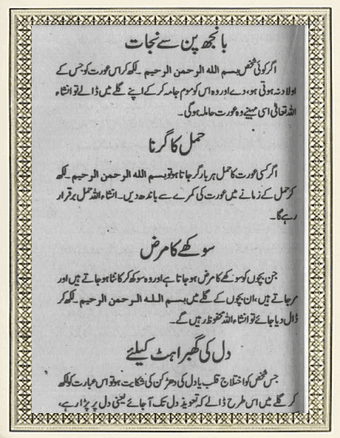 بانجھ پن سے نجات
اگر کوئی شخص بسم الله الرحمن الرحيم ۔لکھ کر اس عورت کو جس کے
اولاد نہ ہوتی ہو، دے اور وہ اس کو موم جامہ کر کے اپنے گلے میں ڈالے تو انشاء
اللہ تعالیٰ اسی مہینے وہ عورت حاملہ ہوگی۔
حمل کا گرنا
اگر کسی عورت کا حمل ہر بار گر جاتا ہو تو بسم الله الرحمن الرحيم ۔لکھ
کر حمل کے زمانے میں عورت کی کمر سے باندھ دیں۔ انشاء اللہ حمل برقرار
رہے گا۔
سوکھے کا مرض
جن بچوں کو سوکھے کا مرض ہو جاتا ہے اور وہ سوکھ کر کانٹا ہو جاتے ہیں اور
مر جاتے ہیں، ان بچوں کے گلے میں بسم الله الرحمن الرحيم ۔لکھ کر
ڈال دیا جائے تو انشاء اللہ محفوظ رہیں گے۔
دل کی گھبراہٹ کیلئے
جس شخص کو اختلاج قلب یا دل کی دھڑکن کی شکایت ہو تو اس عبارت کو لکھ
کر گلے میں اس طرح ڈالے کہ تعویذ دل تک آ جائے یعنی دل پر پڑا رہے،